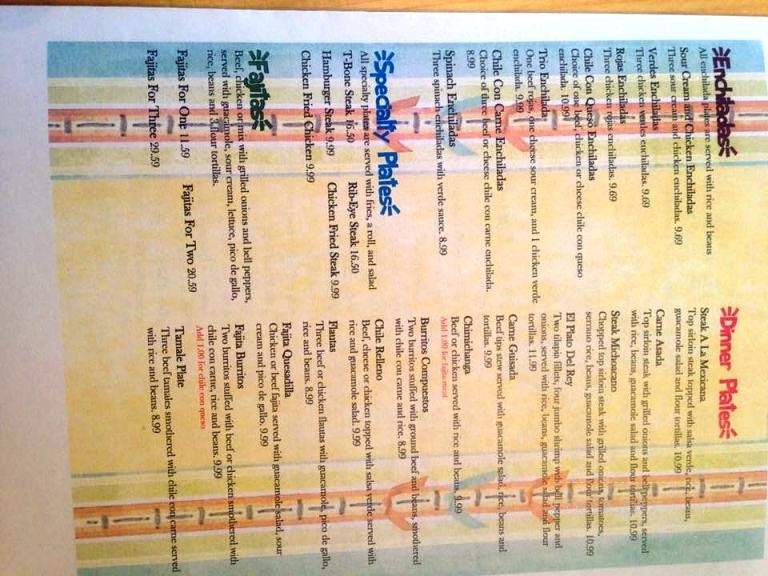 Enchiladas
All enchilada plates are served with rice and beans
Sour Cream and Chicken Enchiladas
Three sour cream and chicken enchiladas. 9.69
Verdes Enchiladas
Three chicken verdes enchiladas. 9.69
Rojas Enchiladas
Three chicken rojas enchiladas. 9.69
Chile Con Queso Enchiladas
Choice of one beef, chicken or cheese chile con queso
enchilada. 10.99
Trio Enchiladas
One beef rojas, one cheese sour cream, and 1 chicken verde
enchilada. 9.99
Chile Con Carne Enchiladas
Choice of three beef or cheese chile con carne enchilada.
8.99
Spinach Enchiladas
Three spinach enchiladas with verde sauce. 8.99
Specialty Plates
All specialty plates are served with fries, a roll, and salad
T-Bone Steak 16.50 Rib-Eye Steak 16.50
Hamburger Steak 9.99 Chicken Fried Steak 9.99
Chicken Fried Chicken 9.99
Fajitas
Beef, chicken or mix with grilled onions and bell peppers,
served with guacamole, sour cream, lettuce, pico de gallo,
rice, beans and 3 flour tortillas.
Fajitas For One 11.59 Fajitas For Two 20.59
Fajitas For Three 29.59
Dinner Plates
Steak A La Mexicana
Top sirloin steak topped with salsa verde, rice, beans,
guacamole salad and flour tortillas. 10.99
Carne Asada
Top sirloin steak with grilled onions and bell peppers, served
with rice, beans, guacamole salad and flour tortillas. 10.99
Steak Michoacano
Chopped top sirloin steak with grilled onions, tomatoes,
serrano rice, beans, guacamole salad and flour tortillas. 10.99
El Plato Del Rey
Two tilapia fillets, four jumbo shrimp with bell pepper and
onions, served with rice, beans, guacamole salad and flour
tortillas. 11.99
Carne Guisada
Beef tips stew served with guacamole salad, rice, beans and
tortillas. 9.99
Chimichanga
Beef or chicken served with rice and beans 9.99
Add 1.00 for fajita meat
Burritos Compuestos
Two burritos stuffed with ground beef and beans, smothered
with chile con carne and rice. 8.99
Chile Relleno
Beef, cheese or chicken topped with salsa verde served with
rice and guacamole salad. 9.99
Flautas
Three beef or chicken flautas with guacamole, pico de gallo,
rice and beans. 8.99
Fajita Quesadilla
Chicken or beef fajita served with guacamole salad, sour
cream and pico de gallo. 9.99
Fajita Burritos
Two burritos stuffed with beef or chicken smothered with
chile con carne, rice and beans. 9.99
Add 1.00 for chile con queso
Tamale Plate
Three beef tamales smothered with chile con carne served
with rice and beans. 8.99